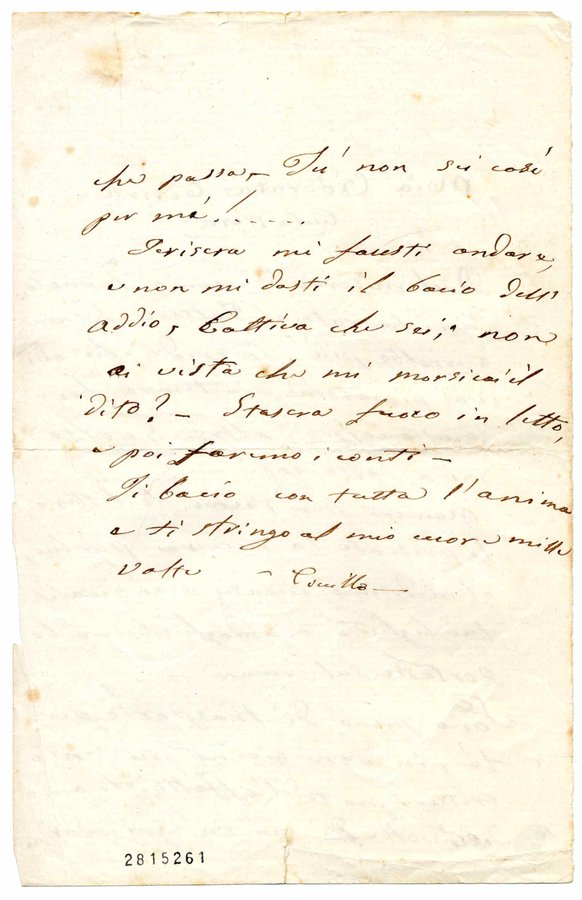 che passa, - Tu' non sei così
per me'! / - . . .
Jerisera mi facesti andare,
e non mi dasti il bacio dell'
addio, Cattiva che sei, non
ai vista che mi morsicai il
dito? - Stasera fuoco in letto,
e poi faremo i conti -
Ti bacio con tutta l'anima
e ti stringo al mio cuore mille
volte -
2815261